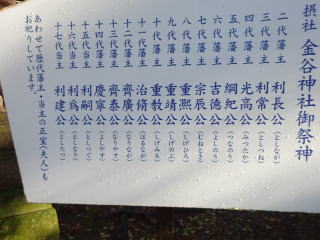 摂社 金谷神社御祭神
二代藩主 利長公（としなが）
三代藩主 利常公（としつね）
四代藩主 光高公（みつたか）
五代藩主 綱紀公（つなのり）
六代藩主 吉德公（よしのり）
七代藩主 宗辰公（むねとき）
八代藩主 重熙公（しげひろ）
九代藩主 重靖公（しげのぶ）
十代藩主 重教公（しげみち）
十一代藩主 治脩公（はるなが）
十二代藩主 齊廣公（なりなが）
十三代藩主 齊泰公（なりやす）
十四代藩主 慶寧公（よしやす）
十五代当主 利嗣公（としつぐ）
十六代当主 利為公（としなり）
十七代当主 利建公（としたつ）
あわせて歴代藩主・当主の正室（夫人）も
お祀りしています。